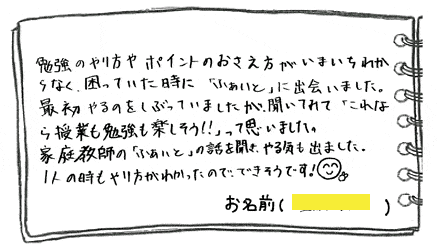 勉強のやり方や ポイントのおさえ方がいまいちわか
らなく、困っていた時に 「ふぁいと」に出会いました。
最初やるのをしぶっていましたが、聞いてみて「これな
ら授業も勉強も楽しそう!!」って思いました。
家庭教師の「ふぁいと」の話を聞き、やる気も出ました。
1人の時もやり方がわかったので、できそうです!
お名前( )